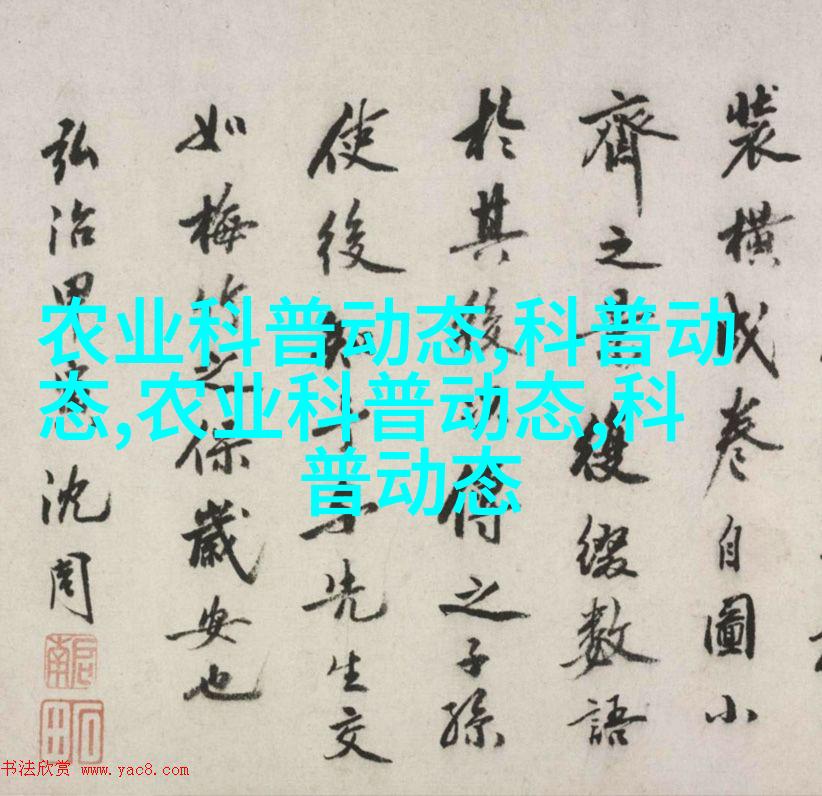 裝橫成卷自圖小
齊之綴數語
於其後傳之子孫
使後先生交
如梅竹之保歲安也
弘治甲沈周
啟南
石田
农业科普动态,科普动
态,农业科普动态,科
普动态
书法欣赏 www.yac8.com